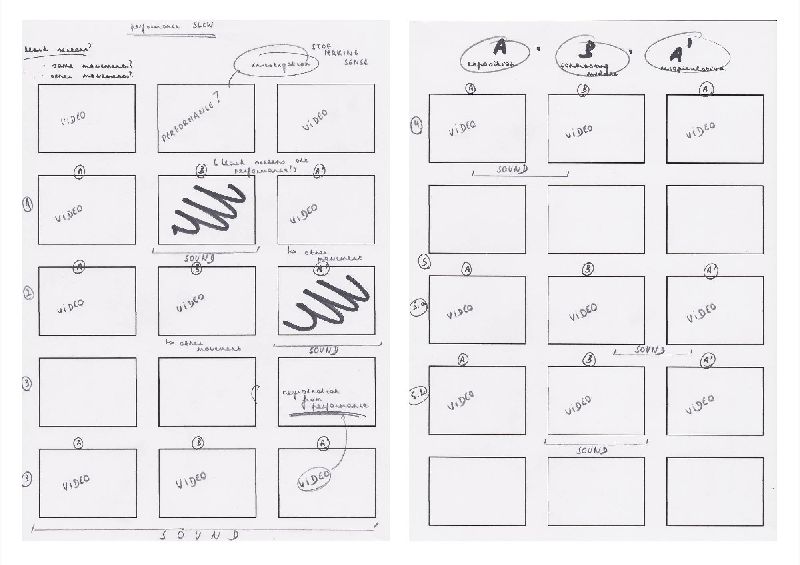 performance SHOW
black screens?
• same movement?
• other movement?
investigation
STOP
MAKING
SENSE
VIDEO
PERFORMANCE?
VIDEO
black screens are
performance's?
1
A
B
A'
VIDEO
VIDEO
SOUND
↳ other
movement
2
A
B
A'
VIDEO
VIDEO
SOUND
↳ other
movement
3
registration
from
performance
3
A
B
A
VIDEO
VIDEO
VIDEO
SOUND
A • B • A'
exposition
contrasting
middle
recapitulation
4
A
B
A'
VIDEO
VIDEO
VIDEO
SOUND
5
5.a
A
B
A'
VIDEO
VIDEO
VIDEO
SOUND
5.b
A
B
A'
VIDEO
VIDEO
VIDEO
SOUND